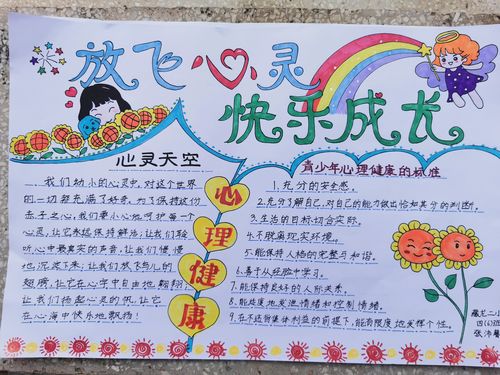 放飞心灵
快乐成长
心灵天空
我们幼小的心灵中,对这个世界
的一切都充满了好奇。为了保持这份
赤子之心,我们要小心地呵护每一个
心灵,让它永远保持鲜活;让我们聆
听心中最真实的声音,让我们慢慢
地沉淀下来;让我们放飞与心的
翅膀,让它在心宇中自由地翱翔;
让我们扬起心灵的帆,让它
在心海中快乐地飘扬!
心
理
健
康
青少年心理健康的标准
1.充分的安全感。
2.充分了解自己,对自己的能力做出恰如其分的判断。
3.生活的目标切合实际。
4.不脱离现实环境。
5.能保持人格的完整与和谐。
6.善于从经验中学习。
7.能保持良好的人际关系。
8.能适度地发泄情绪和控制情绪。
9.在不违背集体利益的前提下,能有限度地发挥个性。
二小
四(6)班